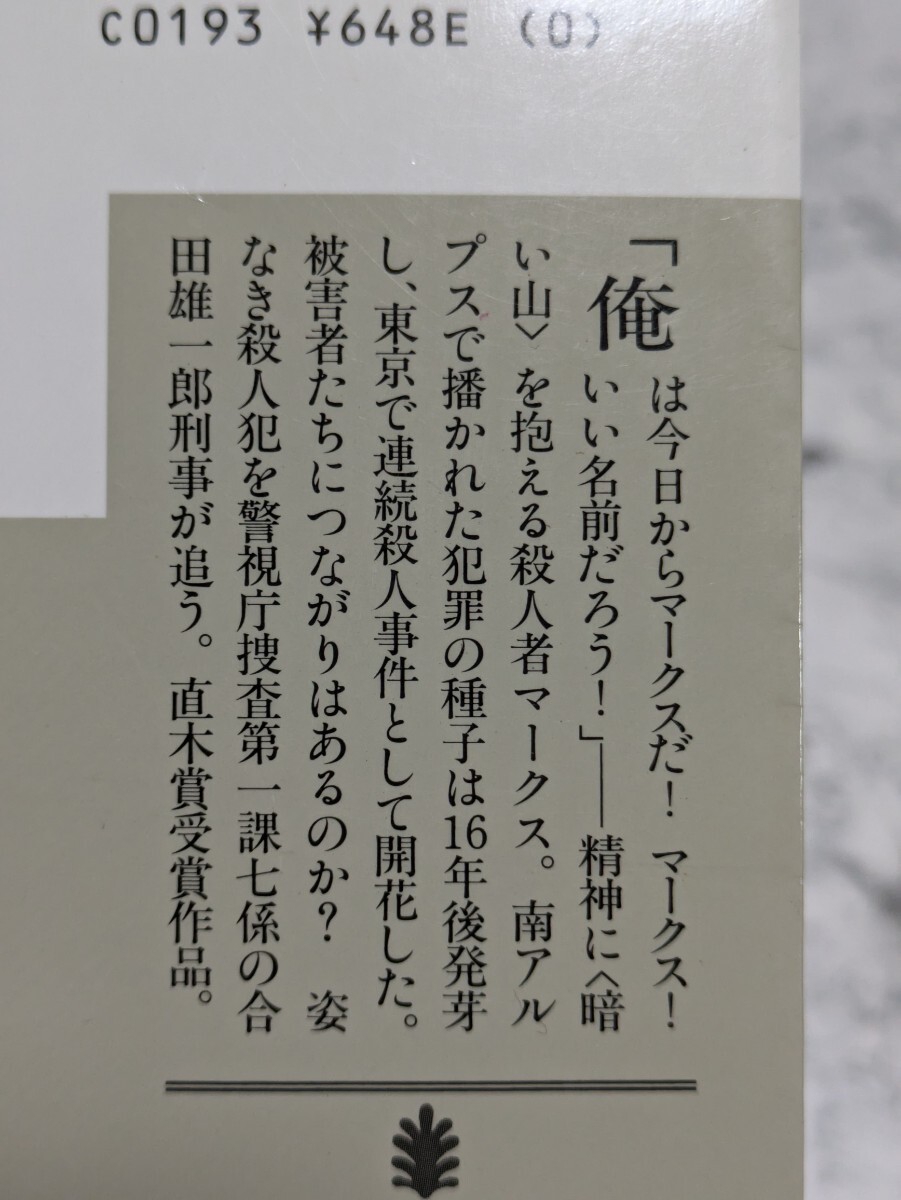 C0193 ¥648E (0)
「俺は今日からマークスだ！ マークス！
いい名前だろう！」――精神に〈暗
い山〉を抱える殺人者マークス。南アル
プスで播かれた犯罪の種子は16年後発芽
し、東京で連続殺人事件として開花した。
被害者たちにつながりはあるのか？ 姿
なき殺人犯を警視庁捜査第一課七係の合
田雄一郎刑事が追う。直木賞受賞作品。